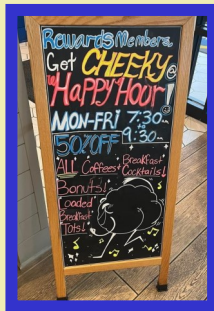 Rewards Members
Get CHEEKY @
Happy Hour!
MON-FRI 7:30-
9:30
50% OFF
ALL Coffees + Breakfast Cocktails!
Bonuts!
Loaded
Breakfast
Tots!